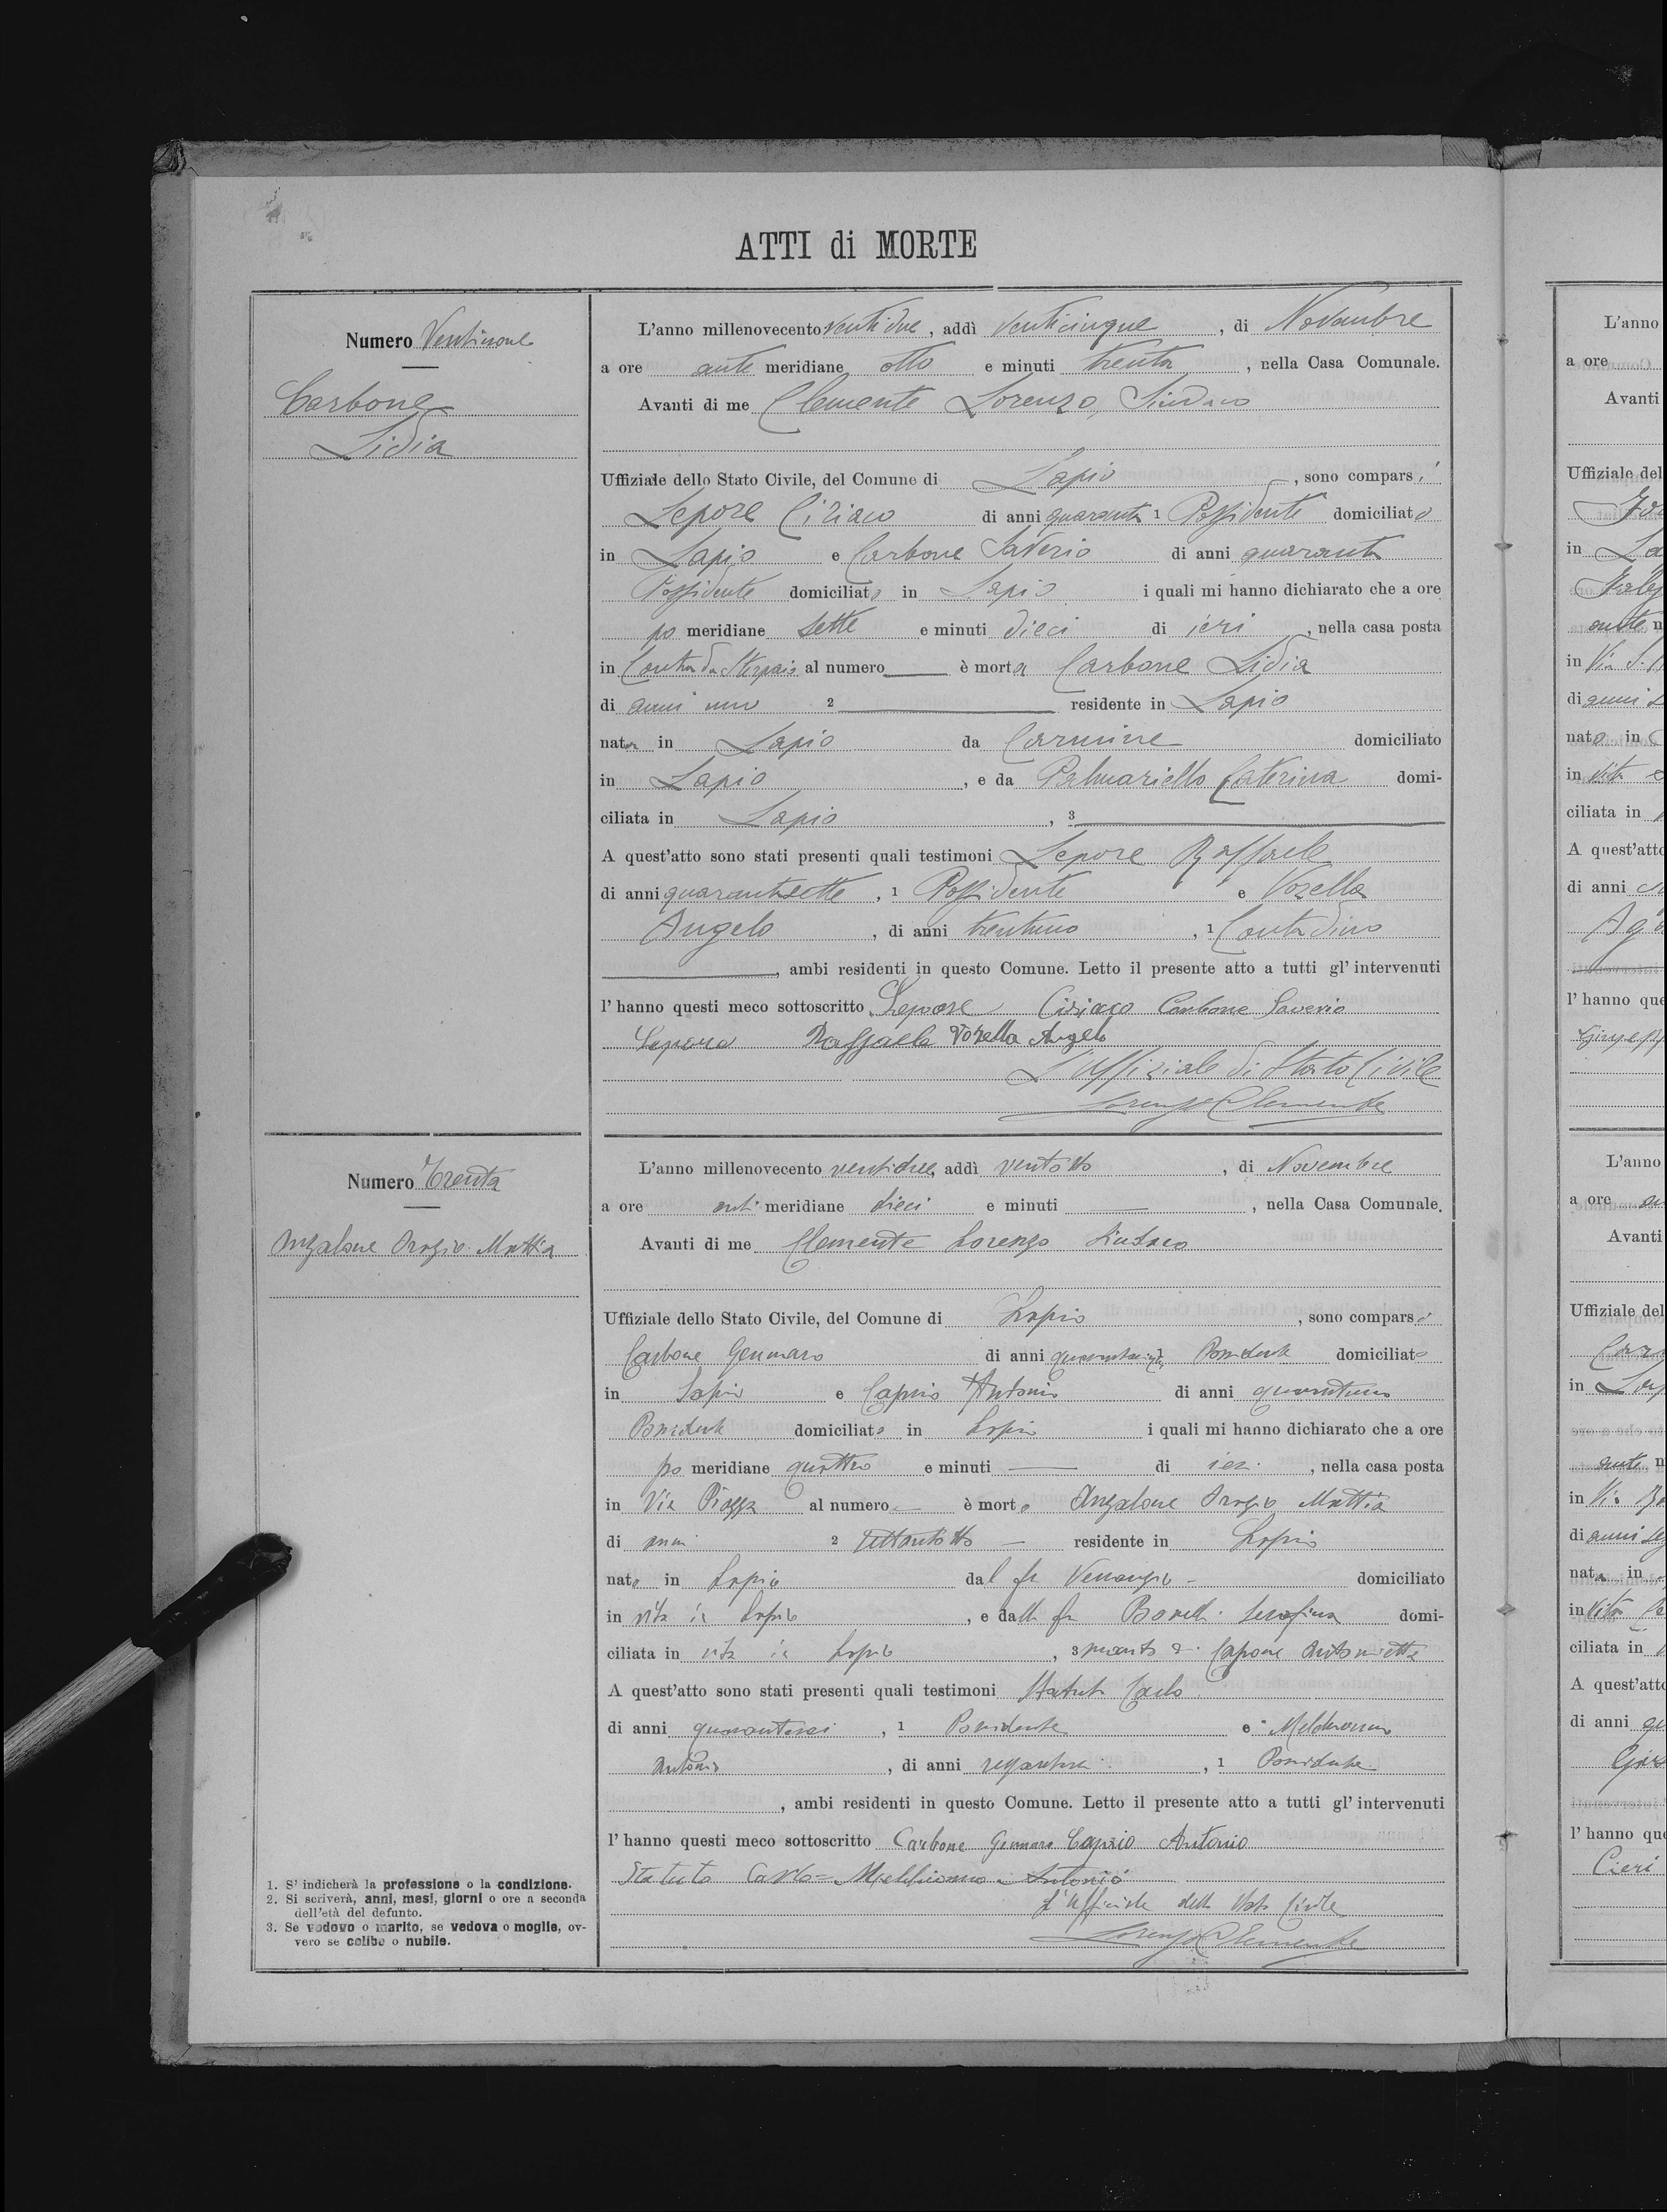 ATTI di MORTE
Numero Ventinove
Carbone
Lidia
L'anno millenovecento ventidue, addì venticinque, di Novembre
a ore ante meridiane otto e minuti trenta, nella Casa Comunale.
Avanti di me Clemente Lorenzo, Sindaco
Uffiziale dello Stato Civile, del Comune di Lapio, sono comparsi
Lepore Ciriaco di anni quaranta 1 Possidente domiciliato
in Lapio e Carbone Saverio di anni quaranta
Possidente domiciliato in Lapio i quali mi hanno dichiarato che a ore
po meridiane sette e minuti dieci di ieri, nella casa posta
in Contrada al numero è morta Carbone Lidia
di anni uno 2 residente in Lapio
nata in Lapio da Carmine domiciliato
in Lapio, e da Palmariello Caterina domi-
ciliata in Lapio, 3
A quest'atto sono stati presenti quali testimoni Lepore Raffaele
di anni quarantasette, 1 Possidente e Vozella
Angelo, di anni trentuno, 1 Contadino
, ambi residenti in questo Comune. Letto il presente atto a tutti gl' intervenuti
l' hanno questi meco sottoscritto Lepore Ciriaco Carbone Saverio
Lepore Raffaele Vozella Angelo
L'Uffiziale di Stato Civile
Lorenzo Clemente
Numero Trenta
Anzalone Orazio Mattia
L'anno millenovecento ventidue, addì ventotto, di Novembre
a ore anti meridiane dieci e minuti, nella Casa Comunale.
Avanti di me Clemente Lorenzo Sindaco
Uffiziale dello Stato Civile, del Comune di Lapio, sono comparsi
Carbone Gennaro di anni Possidente domiciliato
in Lapio e Caprio Antonio di anni quarantuno
Possidente domiciliato in Lapio i quali mi hanno dichiarato che a ore
po meridiane quattro e minuti di ieri, nella casa posta
in Via Piazza al numero è morto Anzalone Orazio Mattia
di anni 2 settantotto residente in Lapio
nato in Lapio dal fu Venanzio domiciliato
in vita in Lapio, e dalla fu Serafina domi-
ciliata in vita in Lapio, 3 marito di Capone Antonietta
A quest'atto sono stati presenti quali testimoni Statuto Carlo
di anni quarantasei, 1 Possidente e Melchionno
Antonio, di anni, 1 Possidente
, ambi residenti in questo Comune. Letto il presente atto a tutti gl' intervenuti
l' hanno questi meco sottoscritto Carbone Gennaro Caprio Antonio
Statuto Carlo = Melchionno Antonio
L'Ufficiale dello Stato Civile
Lorenzo Clemente
1. S' indicherà la professione o la condizione.
2. Si scriverà, anni, mesi, giorni o ore a seconda
dell'età del defunto.
3. Se vedovo o marito, se vedova o moglie, ov-
vero se celibe o nubile.
L'anno
a ore
Avanti
Uffiziale del
in La
ante
in Via S.
di anni
nato in
in vita
ciliata in
A quest'atto
di anni
l' hanno que
L'anno
a ore
Avanti
Uffiziale del
in
ante
in Via
di anni
nata in
in vita
ciliata in
A quest'atto
di anni
l' hanno que
Cieri